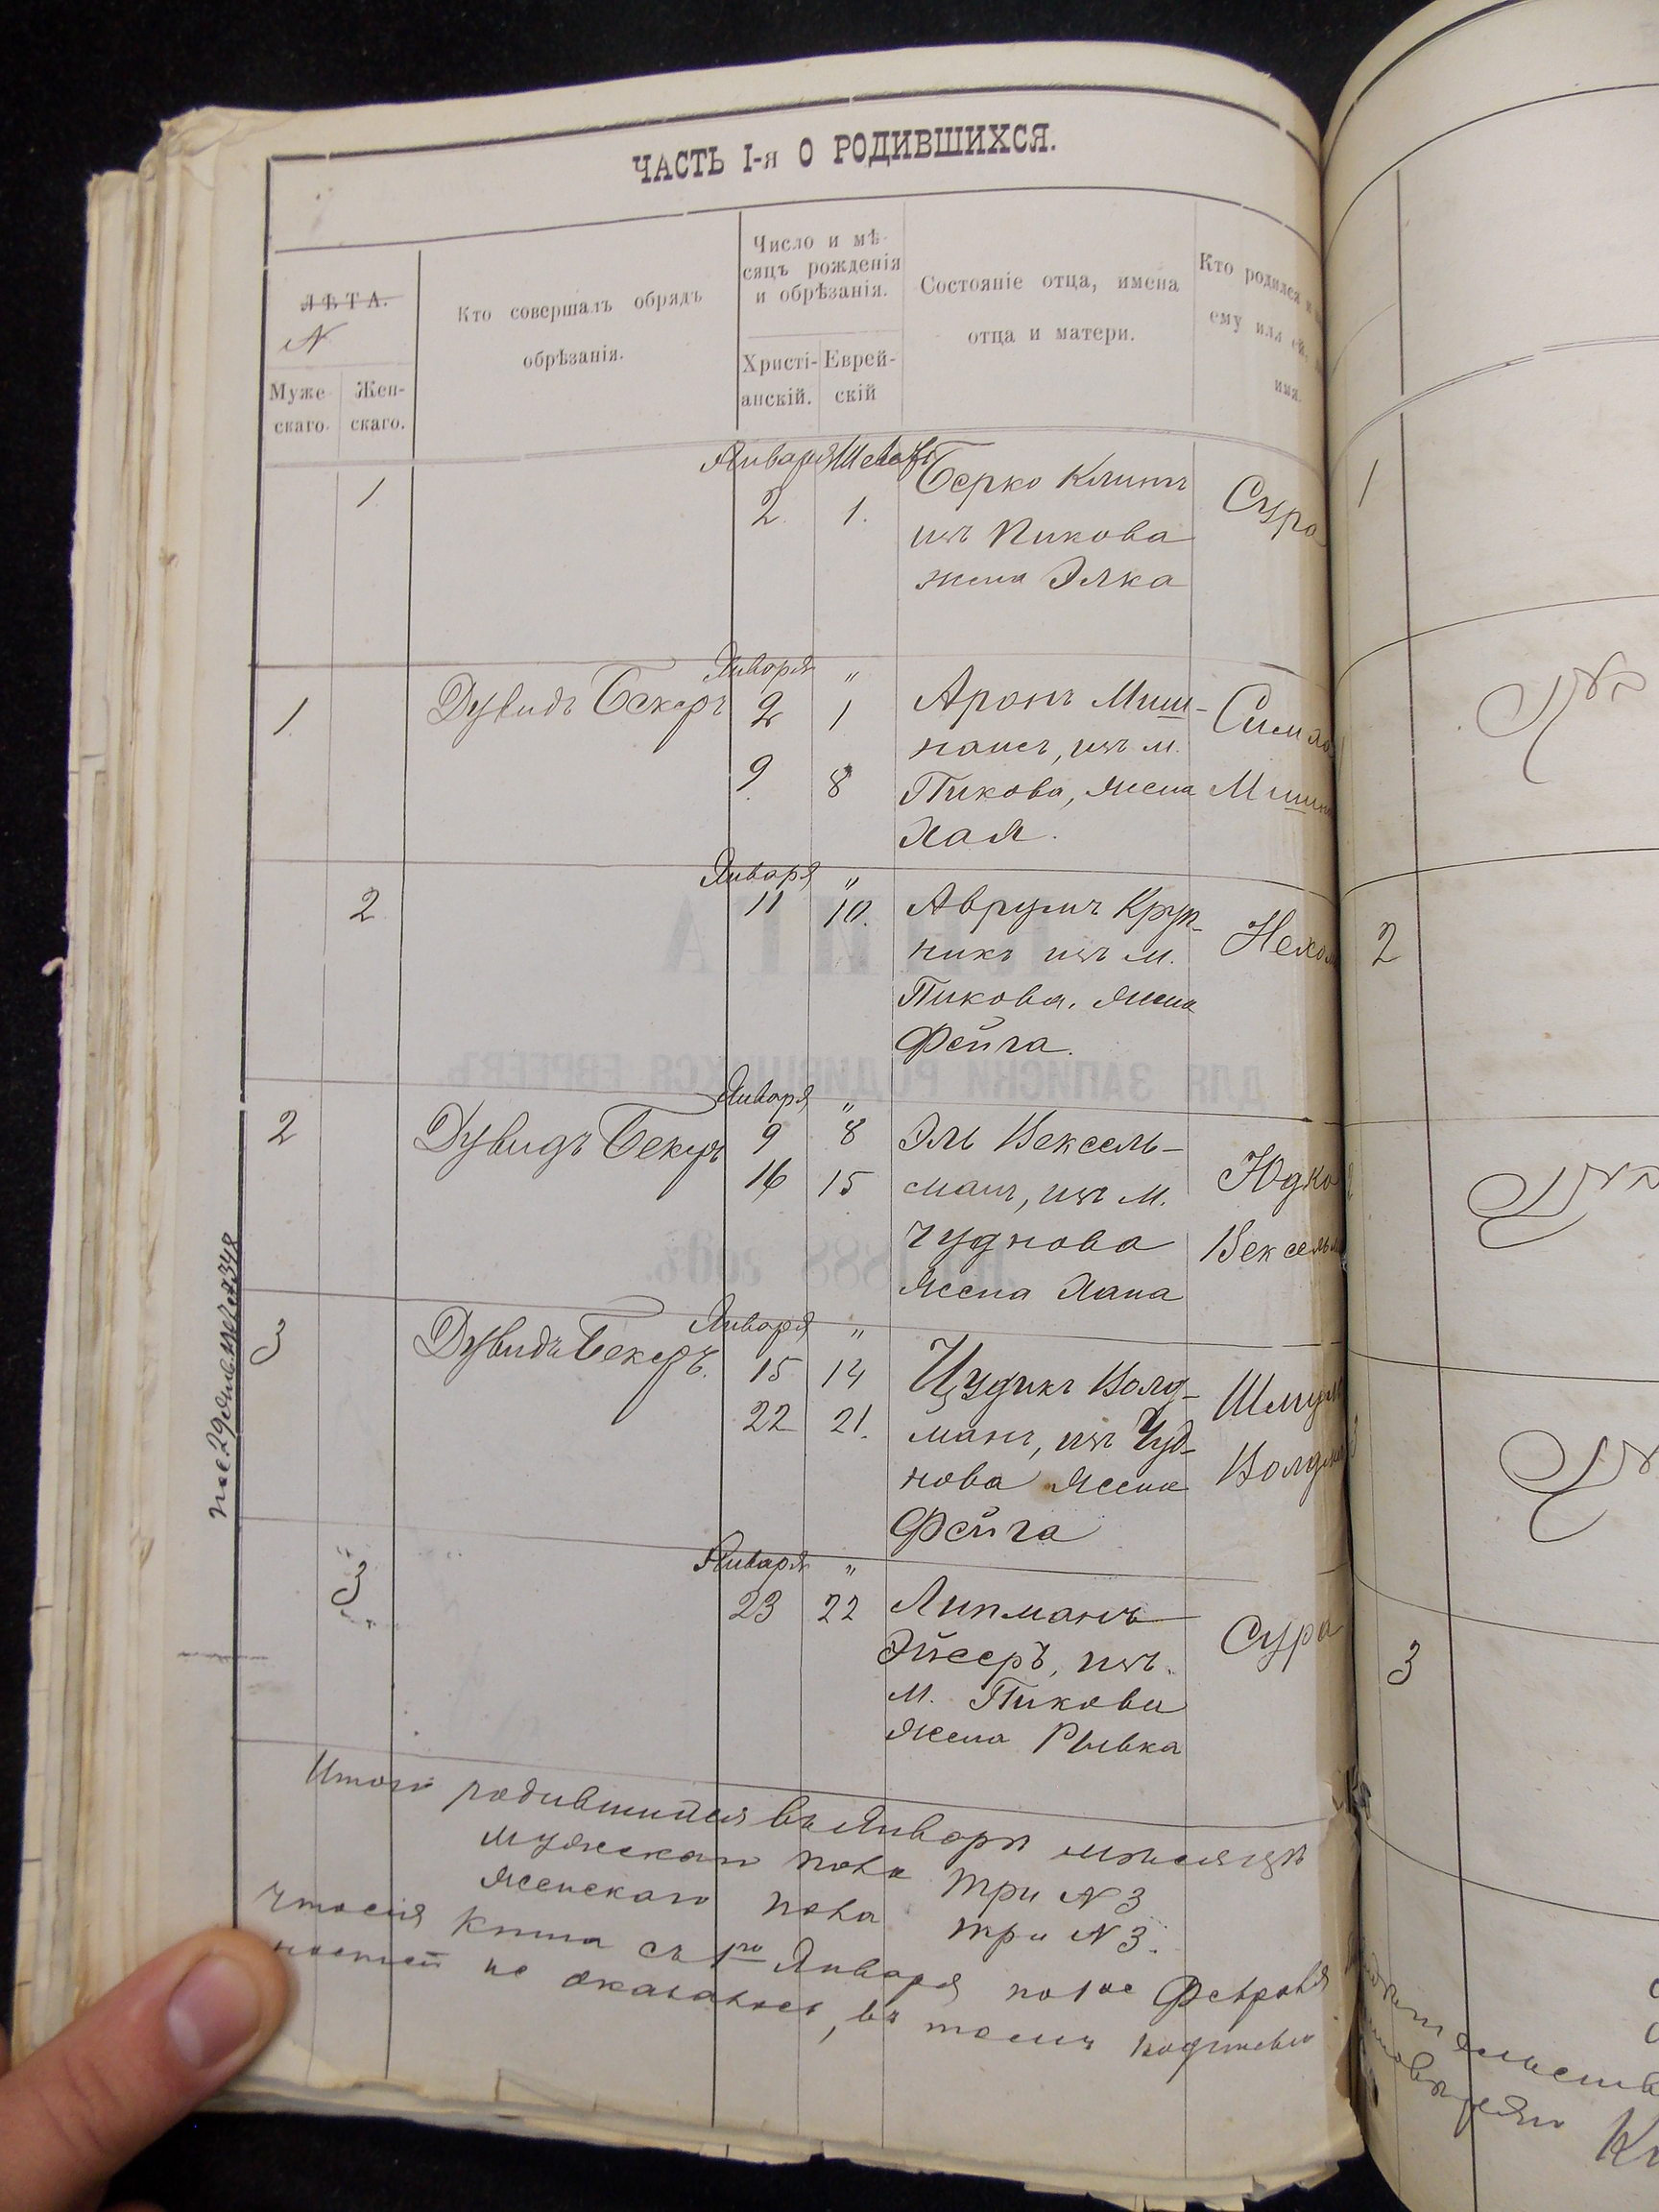 ЧАСТЬ I-я О РОДИВШИХСЯ.
ЛѢТА.
N
Муже-
скаго.
Жен-
скаго.
Кто совершалъ обрядъ
обрѣзанія.
Число и мѣ-
сяцъ рожденія
и обрѣзанія.
Христі-
анскій.
Еврей-
скій
Состояніе отца, имена
отца и матери.
Кто родился и
ему или ей
имя.
1
Января
2.
1.
Берко Клинъ
изъ Пикова
жена Элка
Сура
1
1
Дувидъ Бекеръ
Января "
2 1
9 8
Аронъ Миш-
изъ м.
Пикова, жена
Хая.
2
Января "
11 10.
Аврумъ Круп-
никъ изъ м.
Пикова, жена
Фейга.
2
2
Дувидъ Бекеръ
Января "
9 8
16 15
Эль Вексель-
манъ, изъ м.
Чуднова
жена Хана
Юдко
Вексельм
3
Дувидъ Бекеръ.
Января "
15 14
22 21.
Цудикъ Волд-
манъ, изъ Чуд-
нова жена
Фейга
Шмул
Волдма
3
Января "
23 22
Липманъ
изъ
м. Пикова
жена Рывка
Сура
3
Итого родившихся въ Январѣ мѣсяцѣ
мужескаго пола три N 3
женскаго пола три N 3.
Что сія книга съ 1го Января по 1ое Февраля
не оказалось, въ томъ
ДЛЯ ЗАПИСКИ РОДИВШИХСЯ ЕВРЕЕВЪ
1888 годъ.